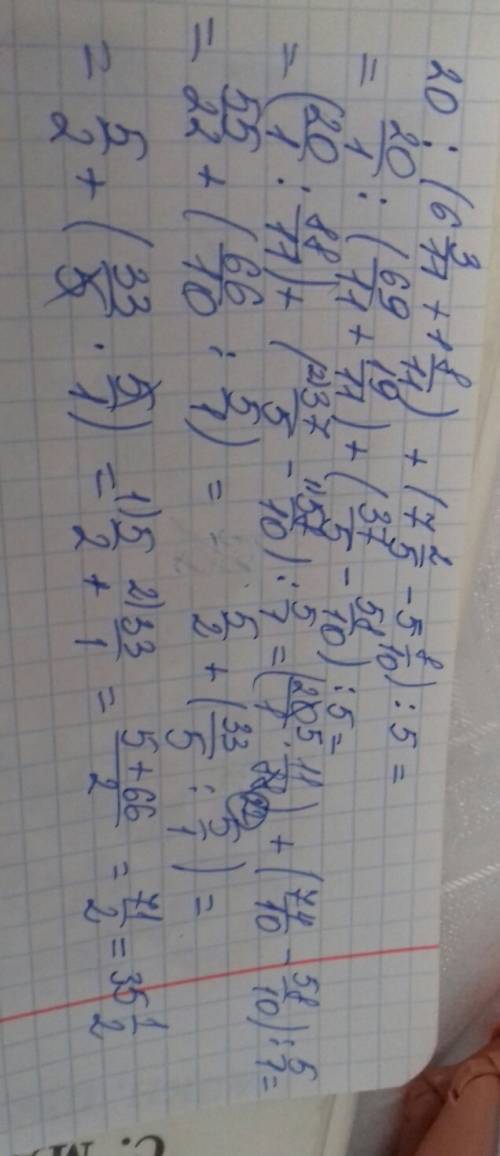 20 : (6 3/11 + 1 8/11) + (7 2/5 - 5 8/10) : 5 =
= 20/1 : (69/11 + 19/11) + (37/5 - 58/10) : 5 =
= (20/1 : 88/11) + (²⁾37/5 - ¹⁾58/10) : 5/1 = (20 5/1 · 11/88 22) + (74/10 - 58/10) : 5/1 =
= 55/22 + (66/10 : 5/1) = 5/2 + (33/5 : 5/1) =
= 5/2 + (33/5 · 5/1) = ¹⁾5/2 + ²⁾33/1 = 5+66/2 = 71/2 = 35 1/2